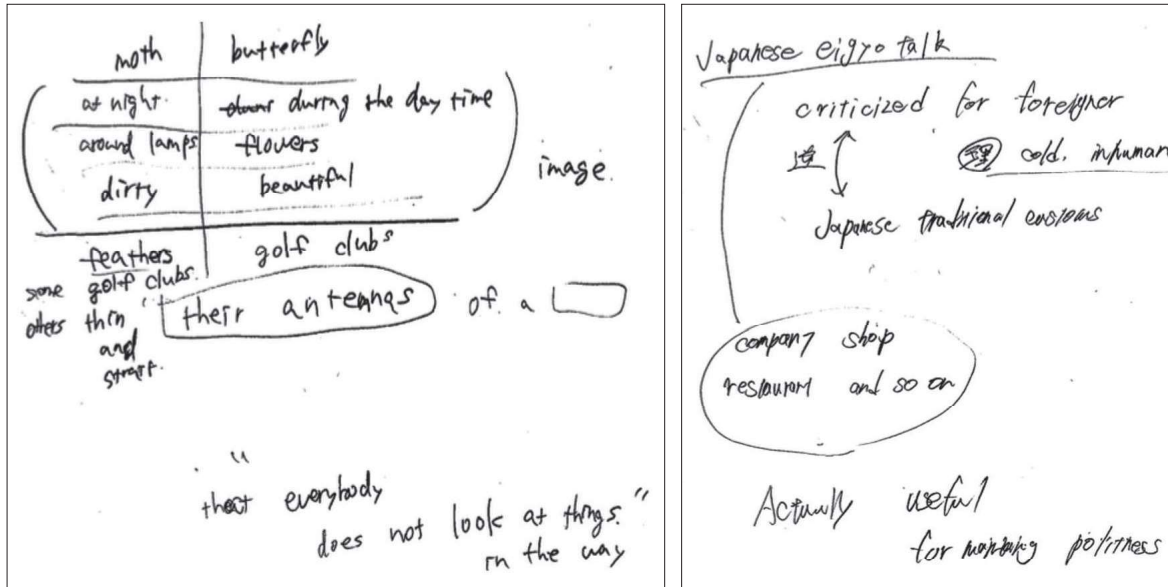 moth butterfly
at night. during the day time
around lamps flowers
dirty beautiful
image.
feathers golf clubs
some golf clubs.
others thin
and
their antennas of a
"that everybody
does not look at things."
in the way
Japanese eigyo talk
criticized for foreigner
逆
理 cold, inhuman
Japanese traditional customs
company shop
restaurant and so on
Actually useful
for politness